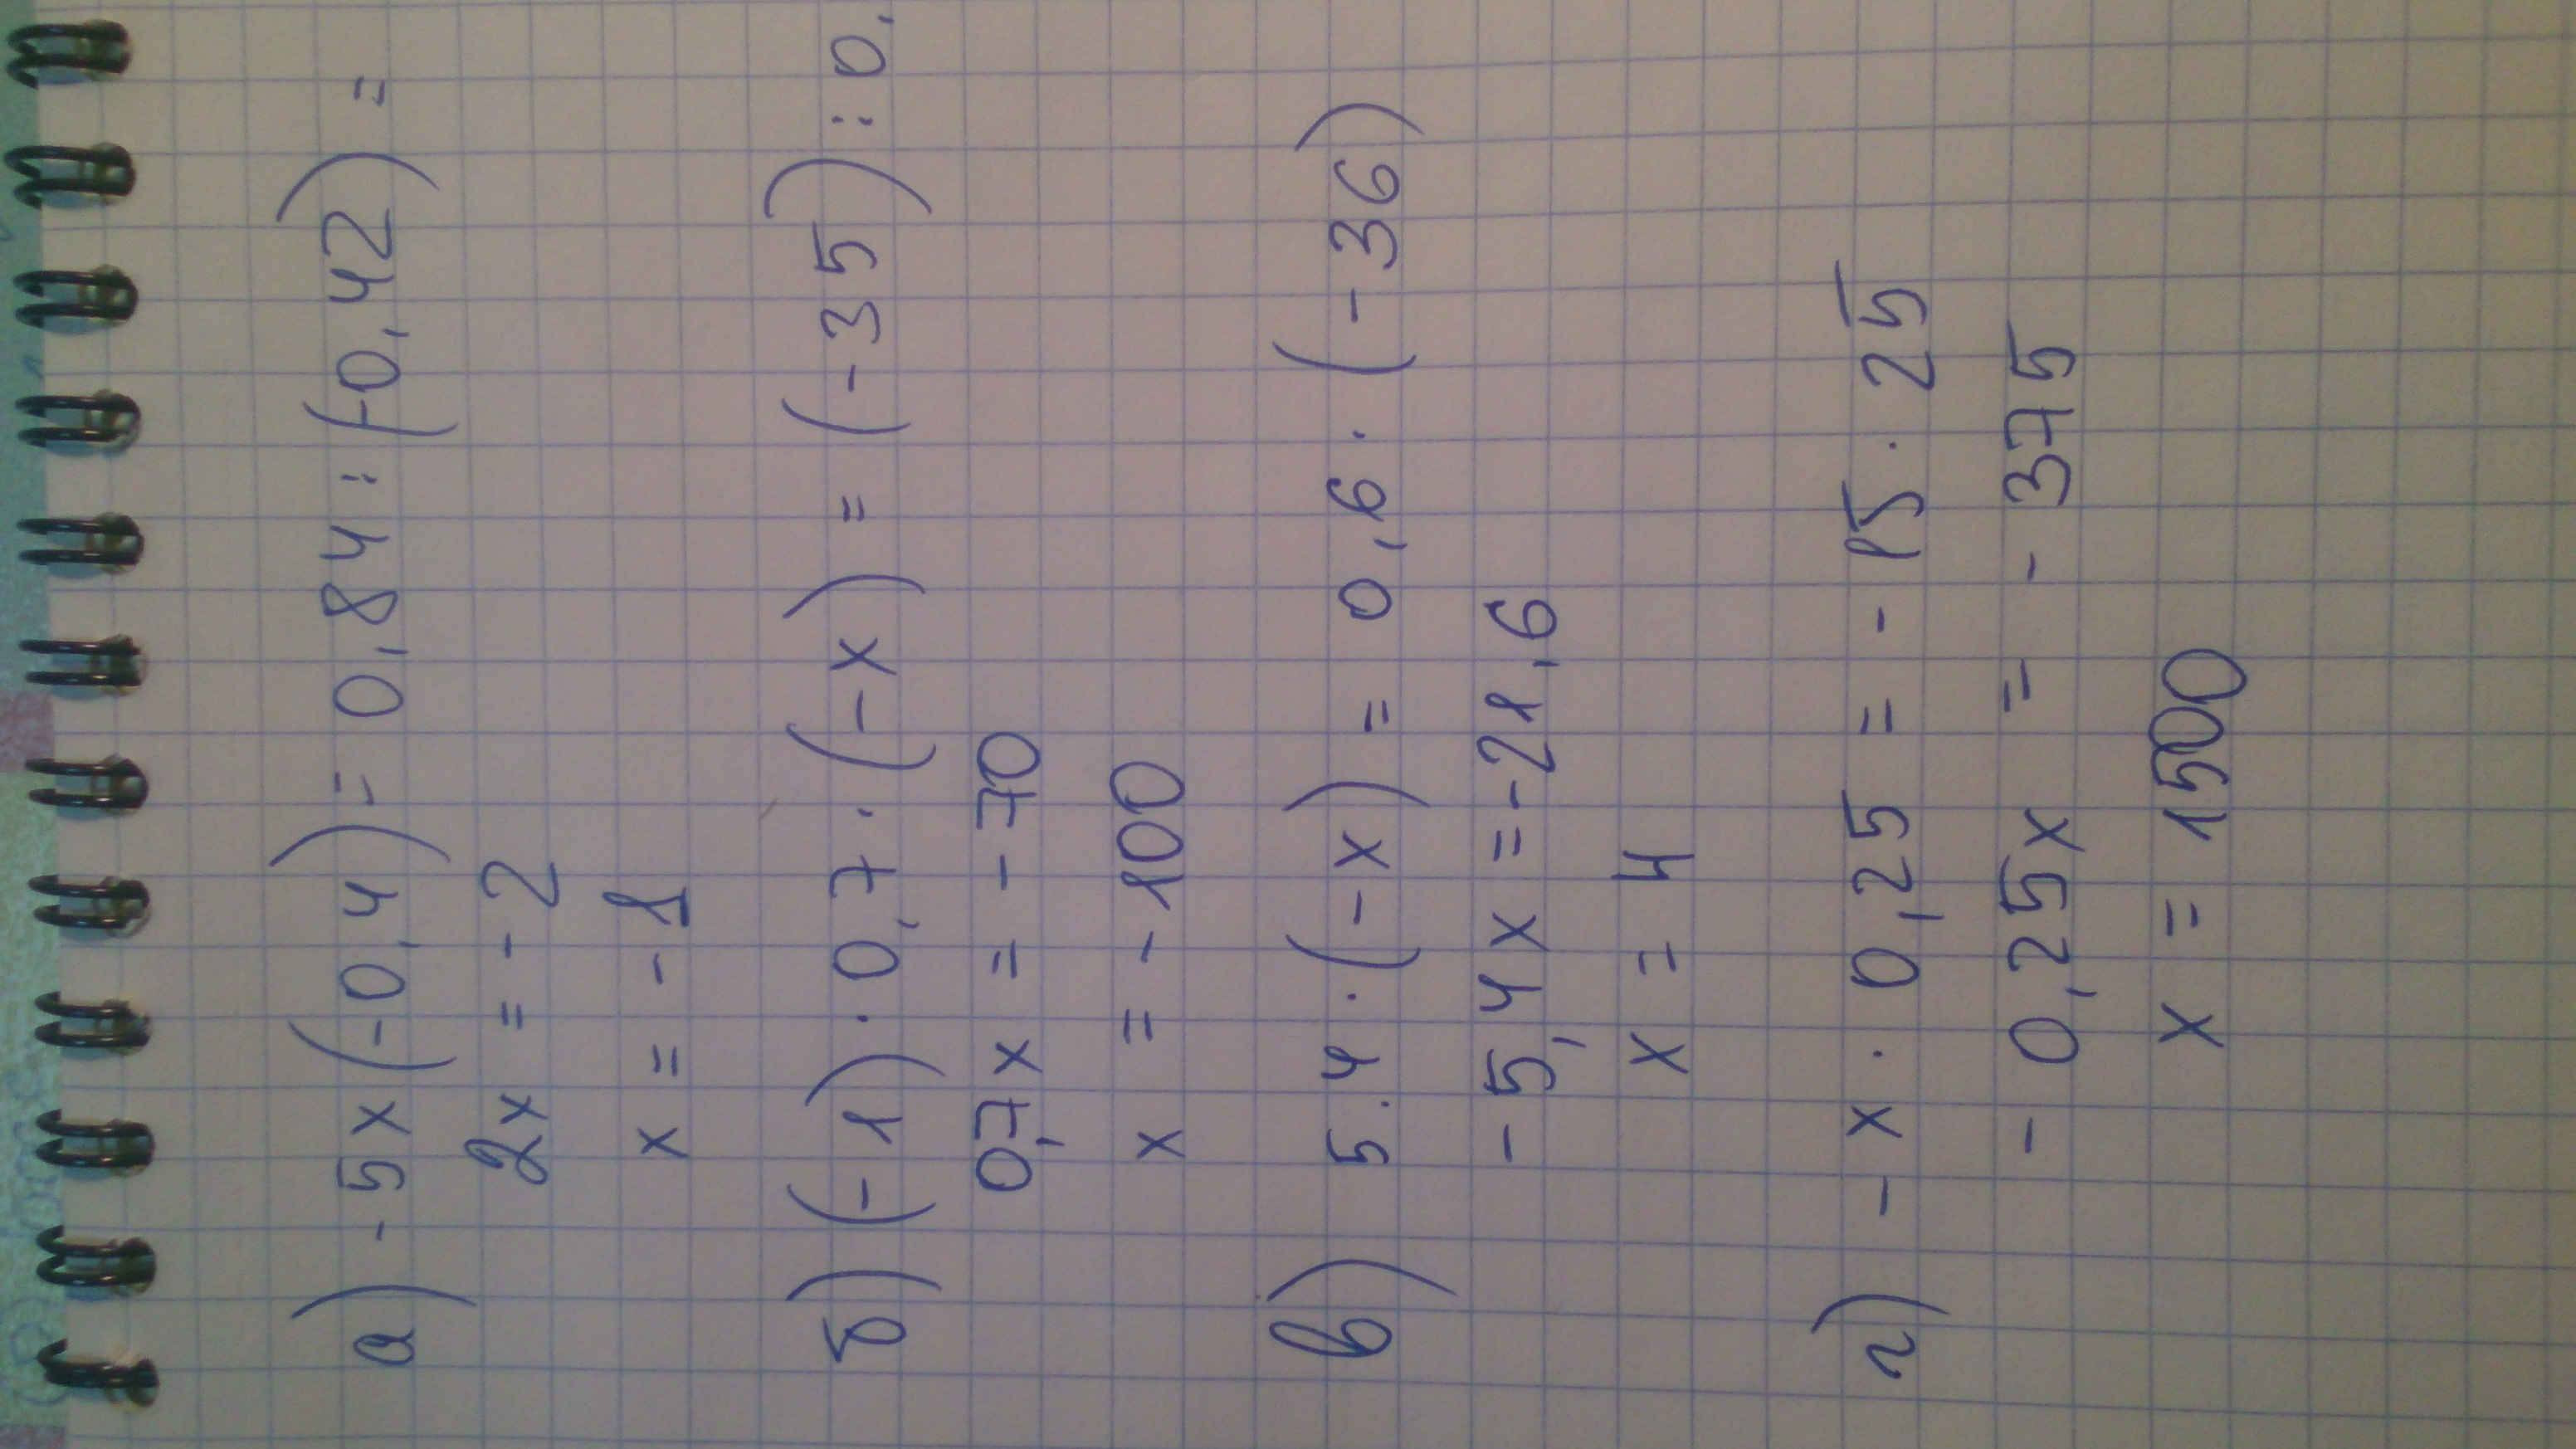 а) -5x(-0,4) = 0,84 : (-0,42) =
2x = -2
x = -1
б) (-1) · 0,7 · (-x) = (-35) : 0,
0,7x = -70
x = -100
в) 5.4 · (-x) = 0,6 · (-36)
-5,4x = -21,6
x = 4
г) -x · 0,25 = -15 · 25
-0,25x = -375
x = 1500